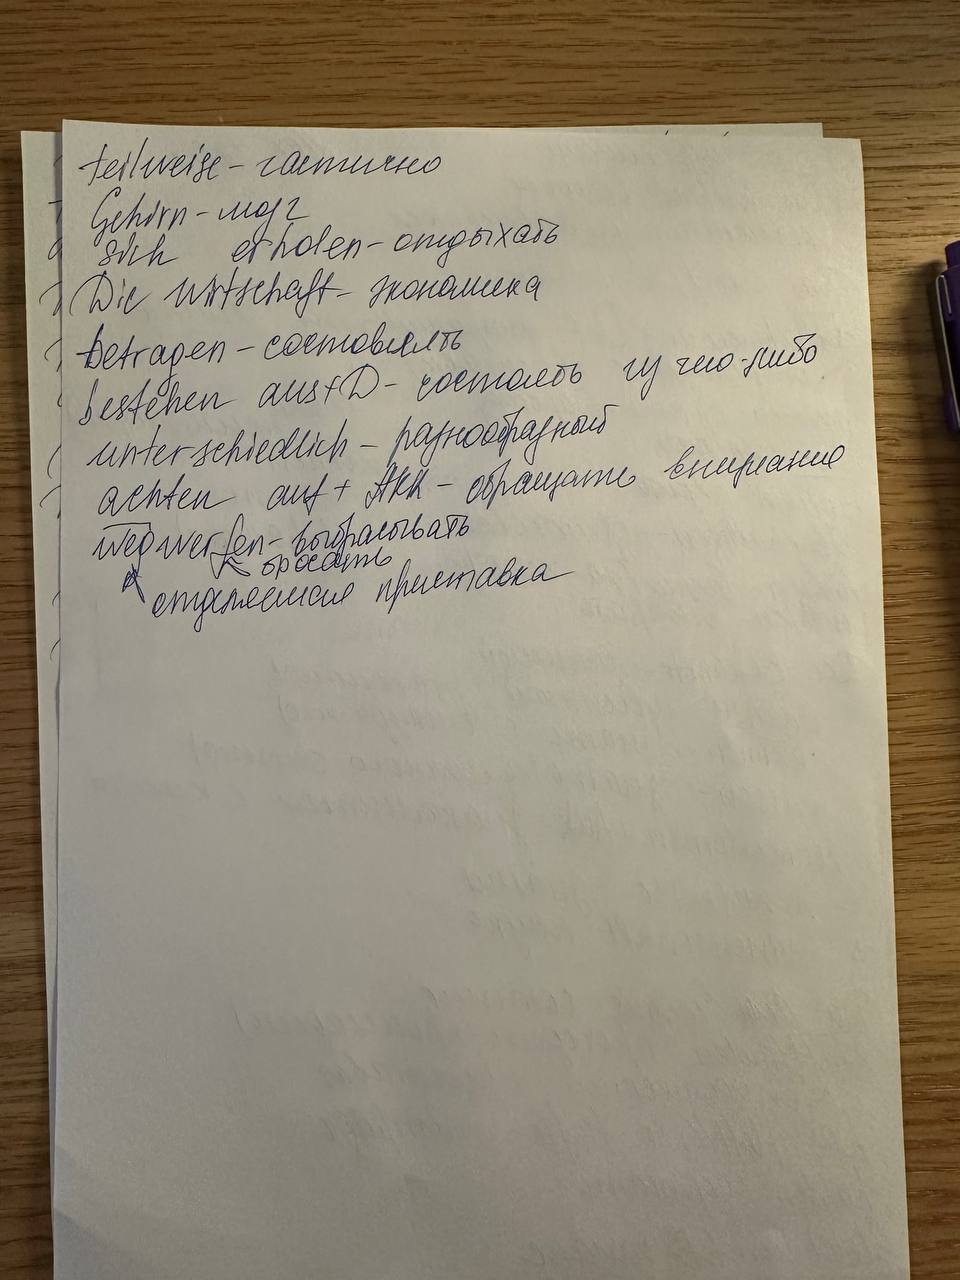 teilweise - частично
Gehirn - мозг
sich erholen - отдыхать
Die Wirtschaft - экономика
betragen - составлять
bestehen aus + D - состоять из чего-либо
unterschiedlich - разнообразный
achten auf + Akk - обращать внимание
wegwerfen - выбрасывать
бросать
отделяемая приставка